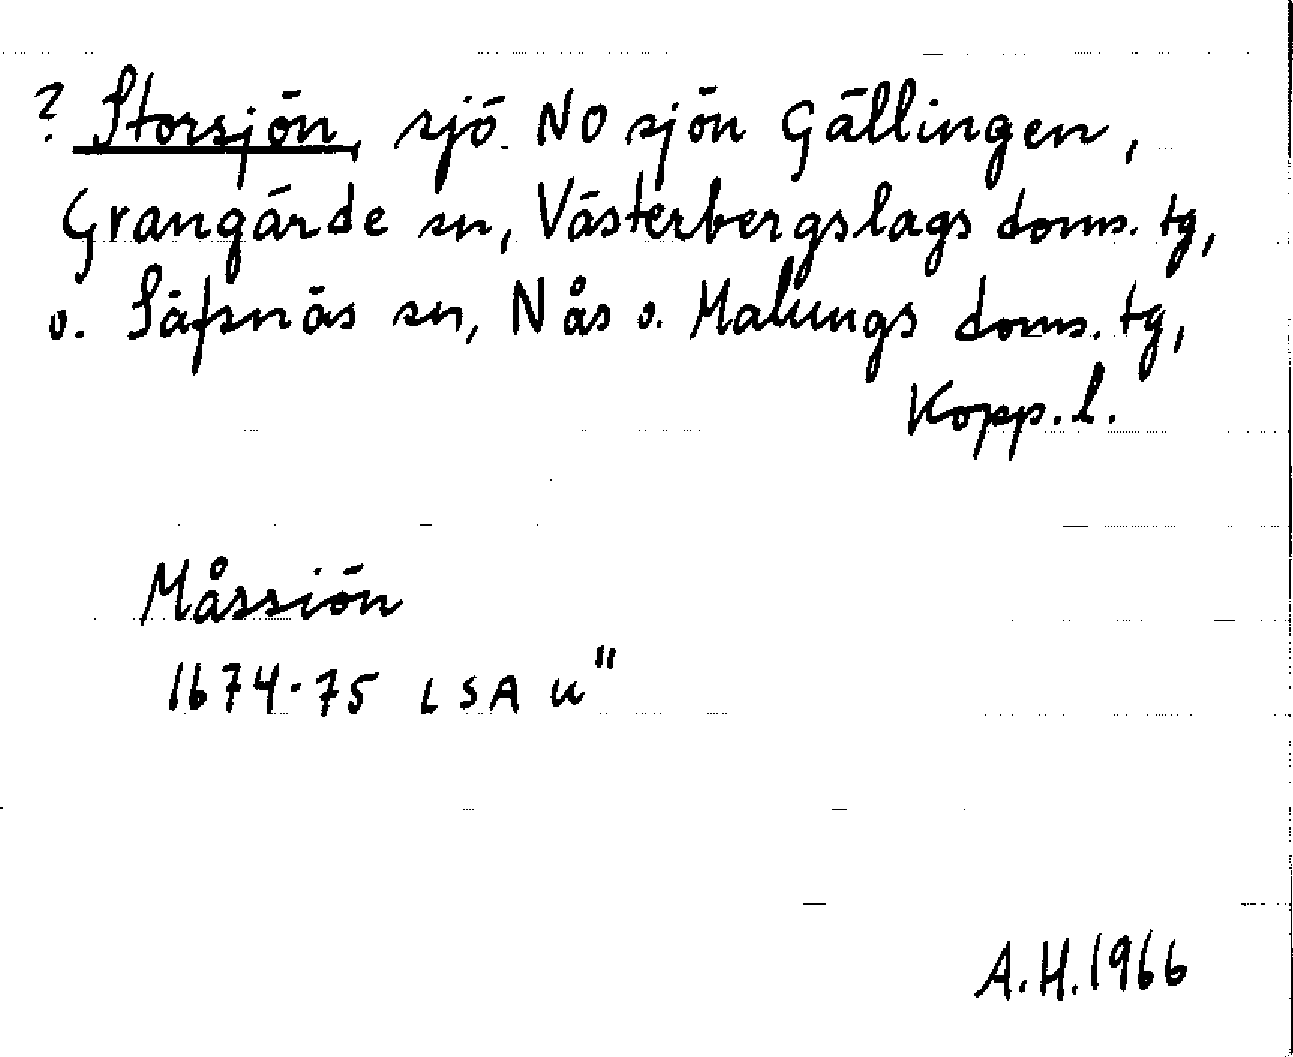 ? Storsjön, sjö NO sjön Gällingen,
Grangärde sn, Västerbergslags doms. tg,
o. Säfsnäs sn, Nås o. Malungs doms. tg,
Kopp. l.
Måssiön
1674-75 LSA U"
A.H. 1966